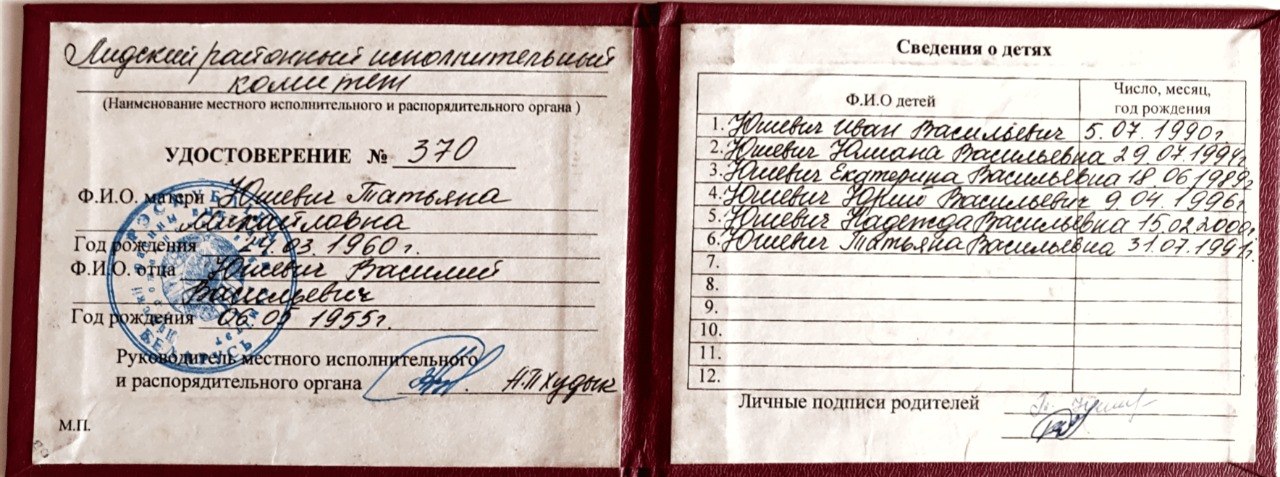 Лидский районный исполнительный
комитет
(Наименование местного исполнительного и распорядительного органа)
УДОСТОВЕРЕНИЕ № 370
Ф.И.О. матери Юшевич Татьяна
Михайловна
Год рождения 03. 1960г.
Ф.И.О. отца Юшевич Василий
Васильевич
Год рождения 06.05 1955г.
Руководитель местного исполнительного
и распорядительного органа Н.П Худык
М.П.
БЕЛАРУСЬ
Сведения о детях
Ф.И.О детей
Число, месяц,
год рождения
1. Юшевич Иван Васильевич 5.07.1990г.
2. Юшевич Юлиана Васильевна 29.07.1994г
3. Юшевич Екатерина Васильевна 18.06.1989г
4. Юшевич Юрий Васильевич 9.04.1996г
5. Юшевич Надежда Васильевна 15.02.2000г.
6. Юшевич Татьяна Васильевна 31.07.1991г.
7.
8.
9.
10.
11.
12.
Личные подписи родителей